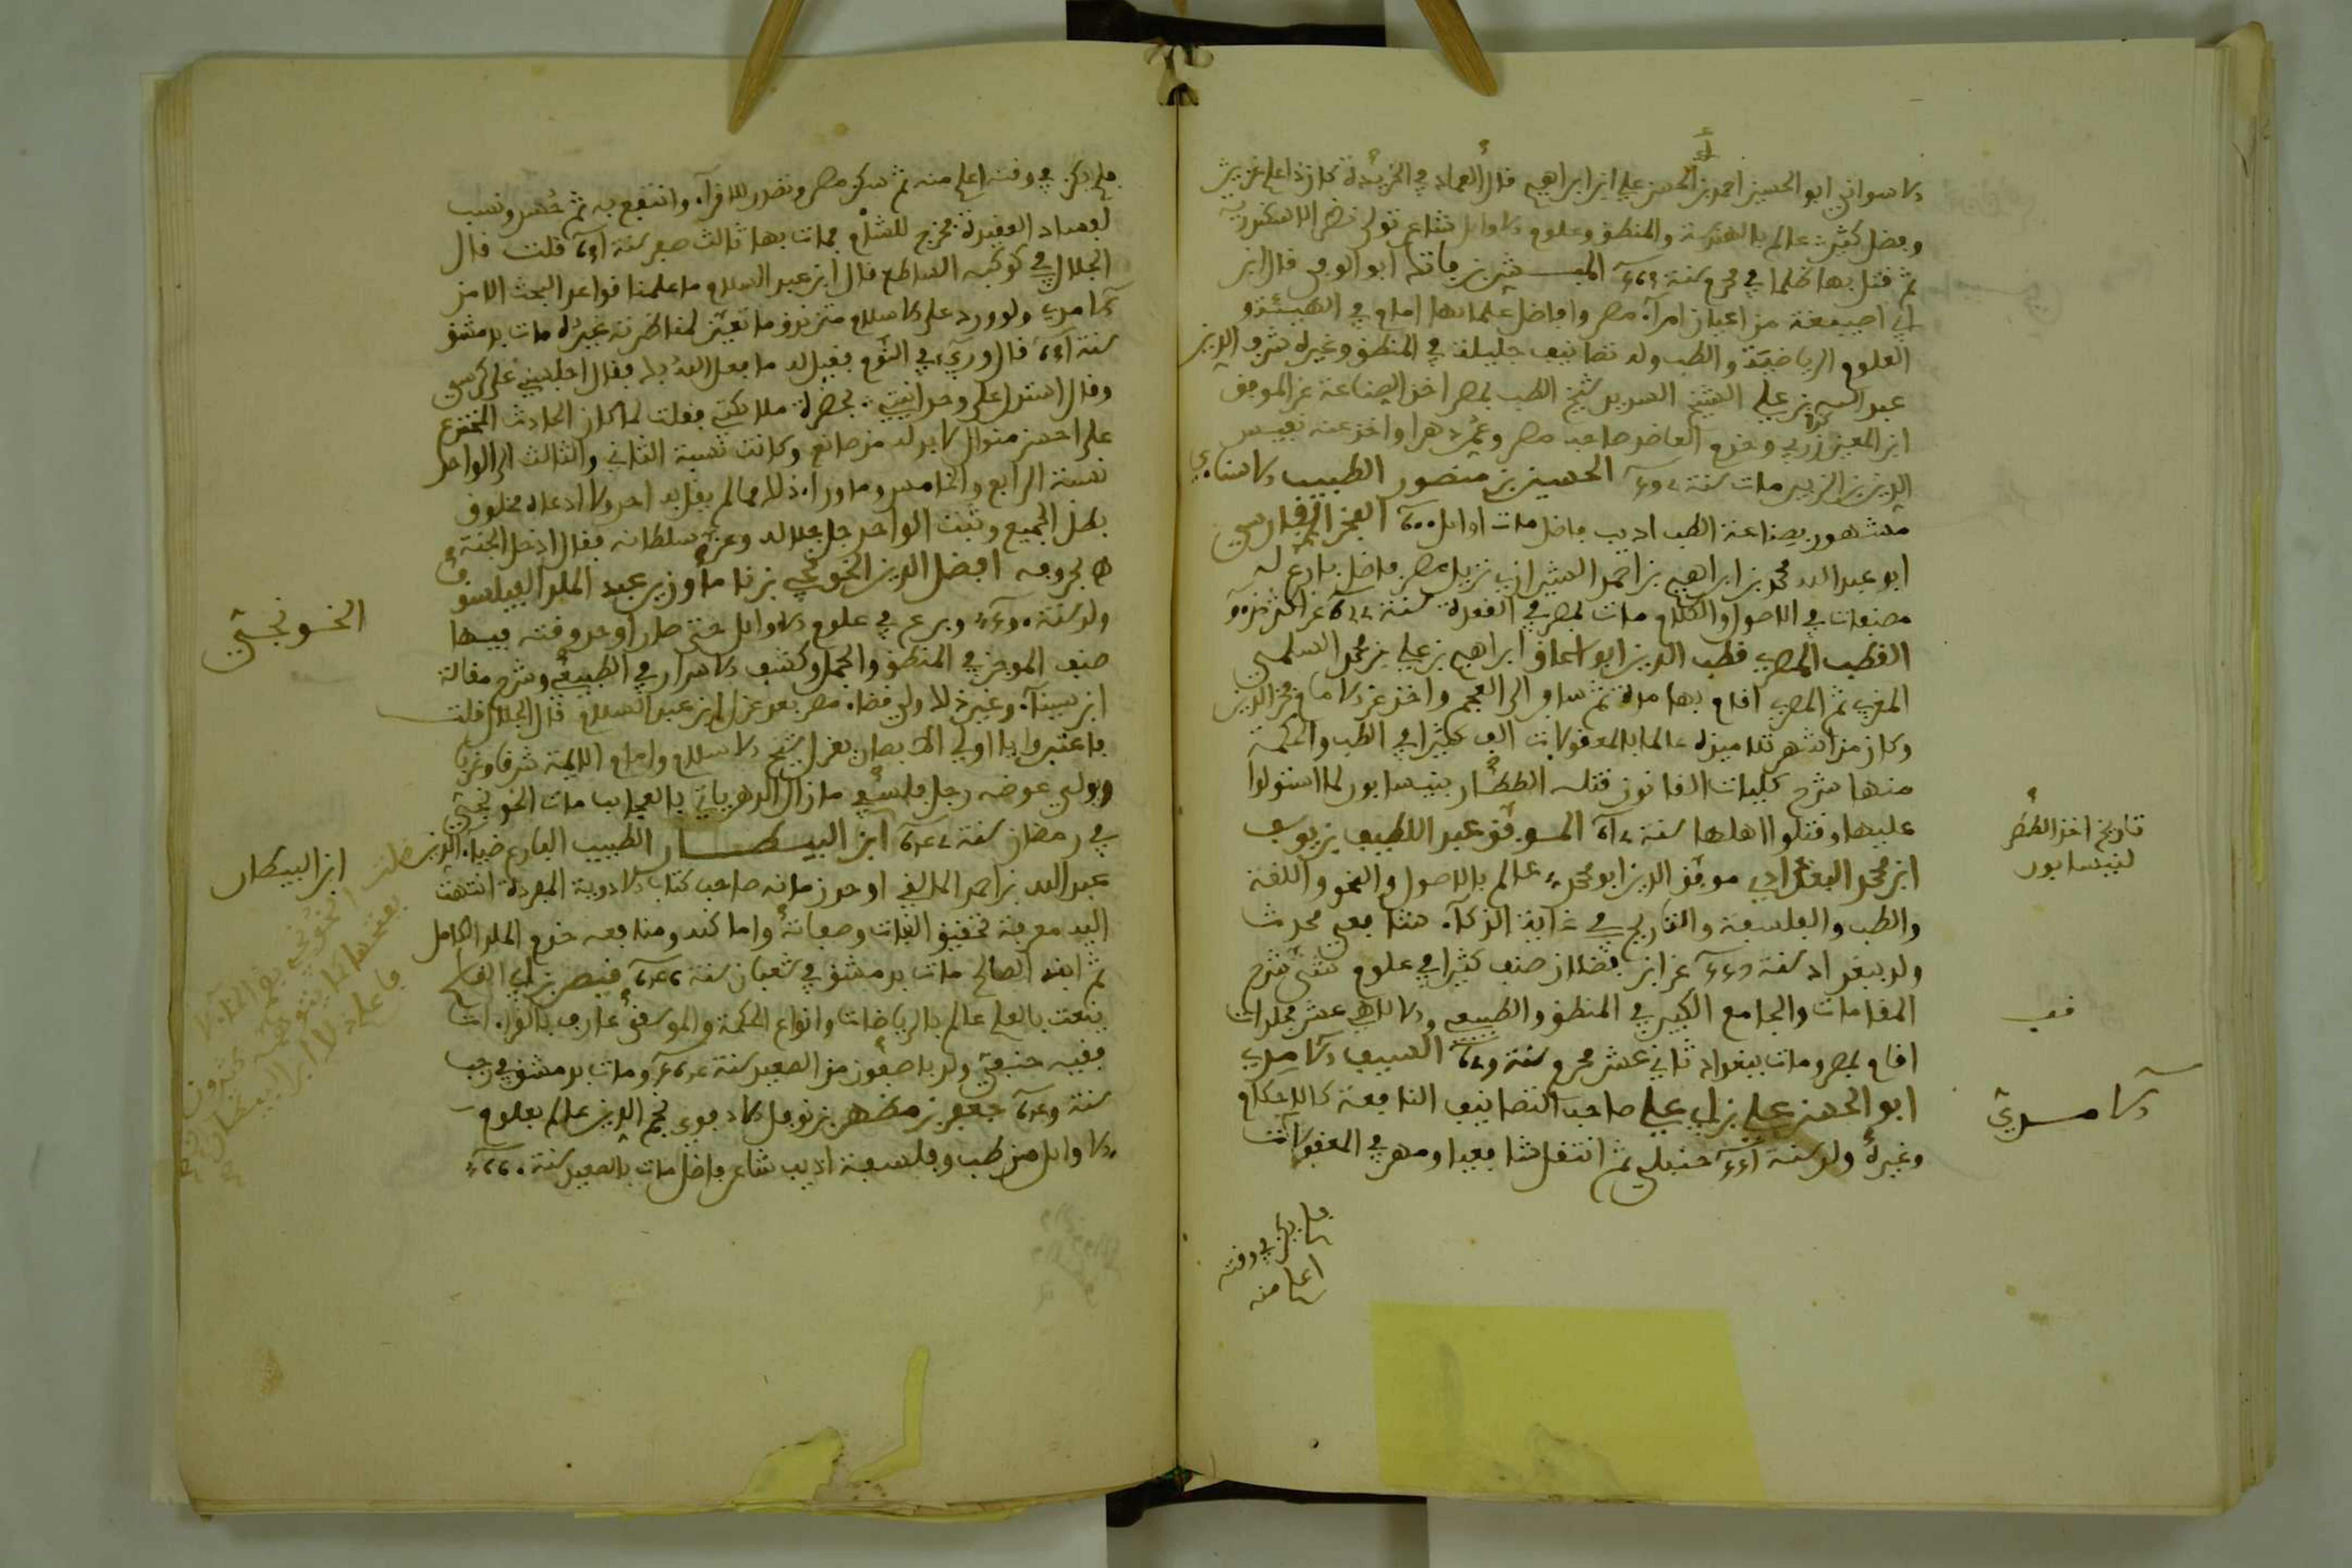 الاسواني ابو الحسين احمد بن الحسن علي ابن ابراهيم قال العماد في الخريدة كان ذا علم غزير
وفضل كثير عالم بالهندسة والمنطق وعلوم الاوايل شاعر تولى نضر الاسكندرية
ثم قتل بها ظلما في محرم سنة المبشر بن فاتك ابو الوفى قال ابن
ابي اصيبعة من اعيان امرآء مصر وافاضل علمائها امام في الهيئة و
العلوم الرياضية والطب وله تصانيف جليلة في المنطق وغيره شرف الدين
عبد الله بن علي الشيخ السديد شيخ الطب بمصر اخذ الصناعة عن الموفق
ابن المعين زربي وخدم العاضد صاحب مصر وعمر دهرا واخذ عنه نفيس
الدين بن الزبير مات سنة الحسين بن منصور الطبيب الاسناءي
مشهور بصناعة الطب اديب فاضل مات اوايل 600 الفخر الفارسي
ابو عبد الله محمد بن ابراهيم بن احمد الشيرازي نزيل مصر فاضل بارع له
مصنفات في الاصول والكلام مات بمصر في القعدة سنة 622 عن اكثر من 90
القطب المصري قطب الدين ابو اسحاق ابراهيم بن علي بن محمد السلمي
المغربي ثم المصري اقام بها مدة ثم سافر الى العجم واخذ عن الامام فخر الدين
وكان من اشهر تلاميذه عالما بالمعقولات الف كثيرا في الطب والحكمة
منها شرح كليات القانون قتله الططار بنيسابور لما استولوا
عليها وقتلوا اهلها سنة الموفق عبد اللطيف بن يوسف
ابن محمد البغدادي موفق الدين ابو محمد عالم بالاصول والنحو واللغة
والطب والفلسفة والتاريخ في غاية الذكآء شافعي محدث
ولد ببغداد سنة عن ابن فضلان صنف كثيرا في علوم شتى شرح
المقامات والجامع الكبير في المنطق والطبيعي والالاهي عشر مجلدات
اقام بمصر ومات ببغداد ثاني عشر محرم سنة السيف الآمدي
ابو الحسن علي بن ابي علي صاحب التصانيف النافعة كالاحكام
وغيره ولد سنة حنبلي ثم انتقل شافعيا ومهر في المعقولات
فلم يكن في وقته
اعلم منه
تاريخ اخذ الططر
لنيسابور
قف
الآمدي
فلم يكن في وقته اعلم منه ثم سكن مصر وتصدر للاقرآء وانتفع به ثم حسد ونسب
لفساد العقيدة فخرج للشام فمات بها ثالث صفر سنة 631 قلت قال
الجلال في كوكبه الساطع قال ابن عبد السلام ما علمنا قواعد البحث الا من
الآمدي ولو ورد على الاسلام متزندق ما تعين لمناظرته غيره مات بدمشق
سنة 631 قال وريء في النوم فقيل له ما فعل الله بك فقال اجلسني على كرسي
وقال استدل على وحدانيتي بحضرة ملائكتي فقلت لما كان الحادث المخترع
على احسن منوال لا بد له من صانع وكانت نسبة الثاني والثالث الى الواحد
نسبة الرابع والخامس وما وراء ذلك مما لم يقل به احد ولا ادعاه مخلوق
بطل الجميع وثبت الواحد جل جلاله وعز سلطانه فقال ادخل الجنة
ﻫ بحروفه افضل الدين الخونجي بن ناماور بن عبد الملك الفيلسوف
ولد سنة 590 وبرع في علوم الاوايل حتى صار اوحد وقته فيها
صنف الموجز في المنطق والجمل وكشف الاسرار في الطبيعي وشرح مقالة
ابن سيناء وغير ذلك ولي قضاء مصر بعد عزل ابن عبد السلام قال الجلال قلت
فاعتبروا يا اولي الابصار يعزل شيخ الاسلام وامام الائمة شرقا وغربا
ويولى عوضه رجل فلسفي ما زال الدهر ياتي بالعجايب مات الخونجي
في رمضان سنة ابن البيطار الطبيب البارع ضياء الدين
عبد الله بن احمد المالقي اوحد زمانه صاحب كتاب الادوية المفردة انتهت
اليه معرفة تحقيق النبات وصفاته واماكنه ومنافعه خدم الملك الكامل
ثم ابنه الصالح مات بدمشق في شعبان سنة 646 قيصر بن ابي القاسم
ينعت بالعلم عالم بالرياضات وانواع الحكمة والموسيقى عارف بالقراءات
فقيه حنفي ولد باصفون من الصعيد سنة ومات بدمشق في رجب
سنة 649 جعفر بن مطهر بن نوفل الادفوي نجم الدين عالم بعلوم
الاوايل من طب وفلسفة اديب شاعر فاضل مات بالصعيد سنة 660
الخونجي
ابن البيطار
قلت الخونجي بضم الخاء لا
بفتحها كما يتوهمه كثيرون